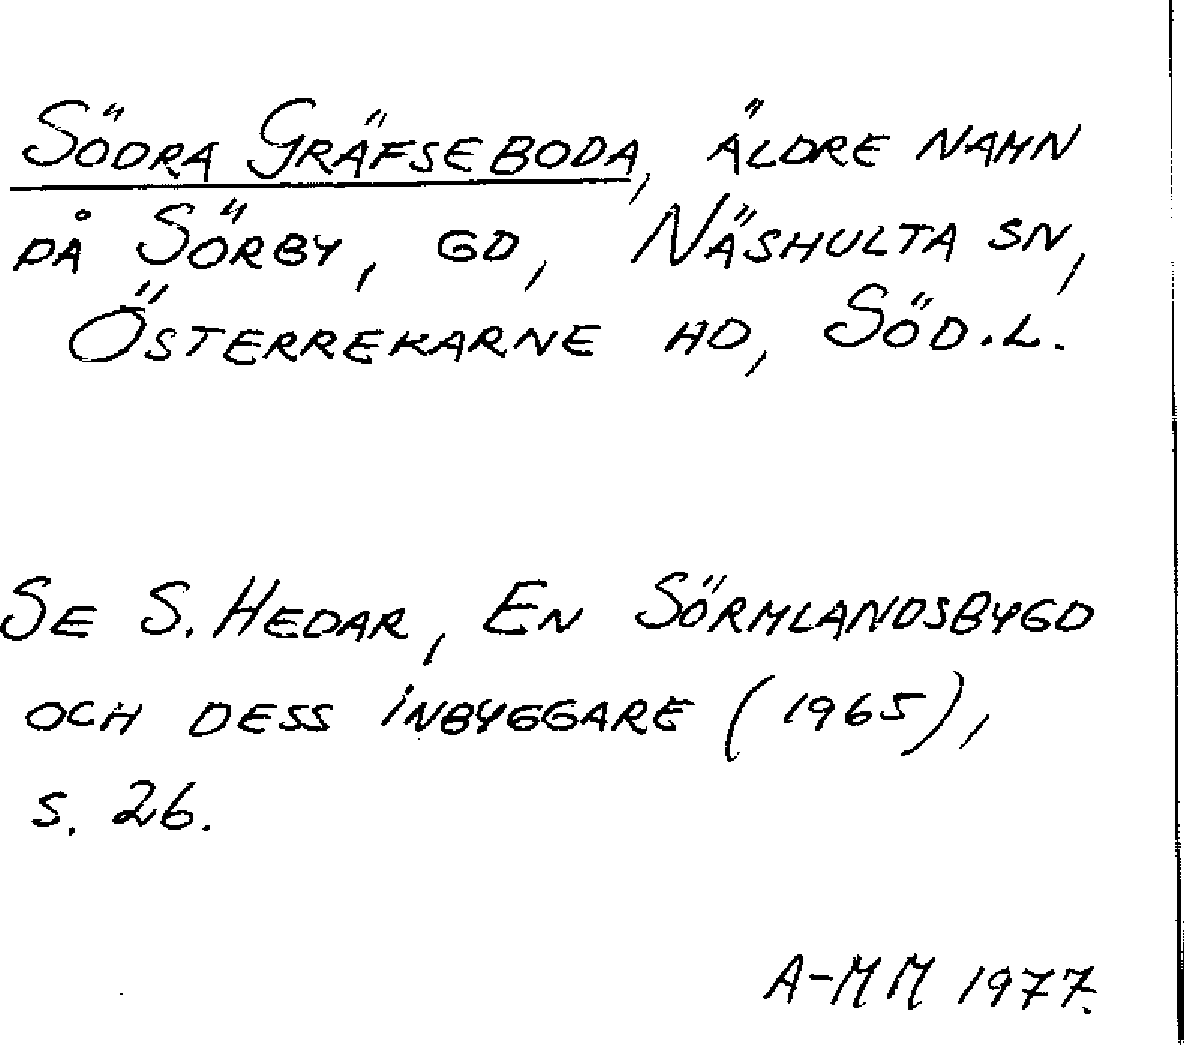 Södra Gräfseboda, äldre namn
på Sörby, gd, Näshulta sn,
Österrekarne hd, Söd.l.
Se S. Hedar, En Sörmlandsbygd
och dess inbyggare (1965),
s. 26.
A-MM 1977.